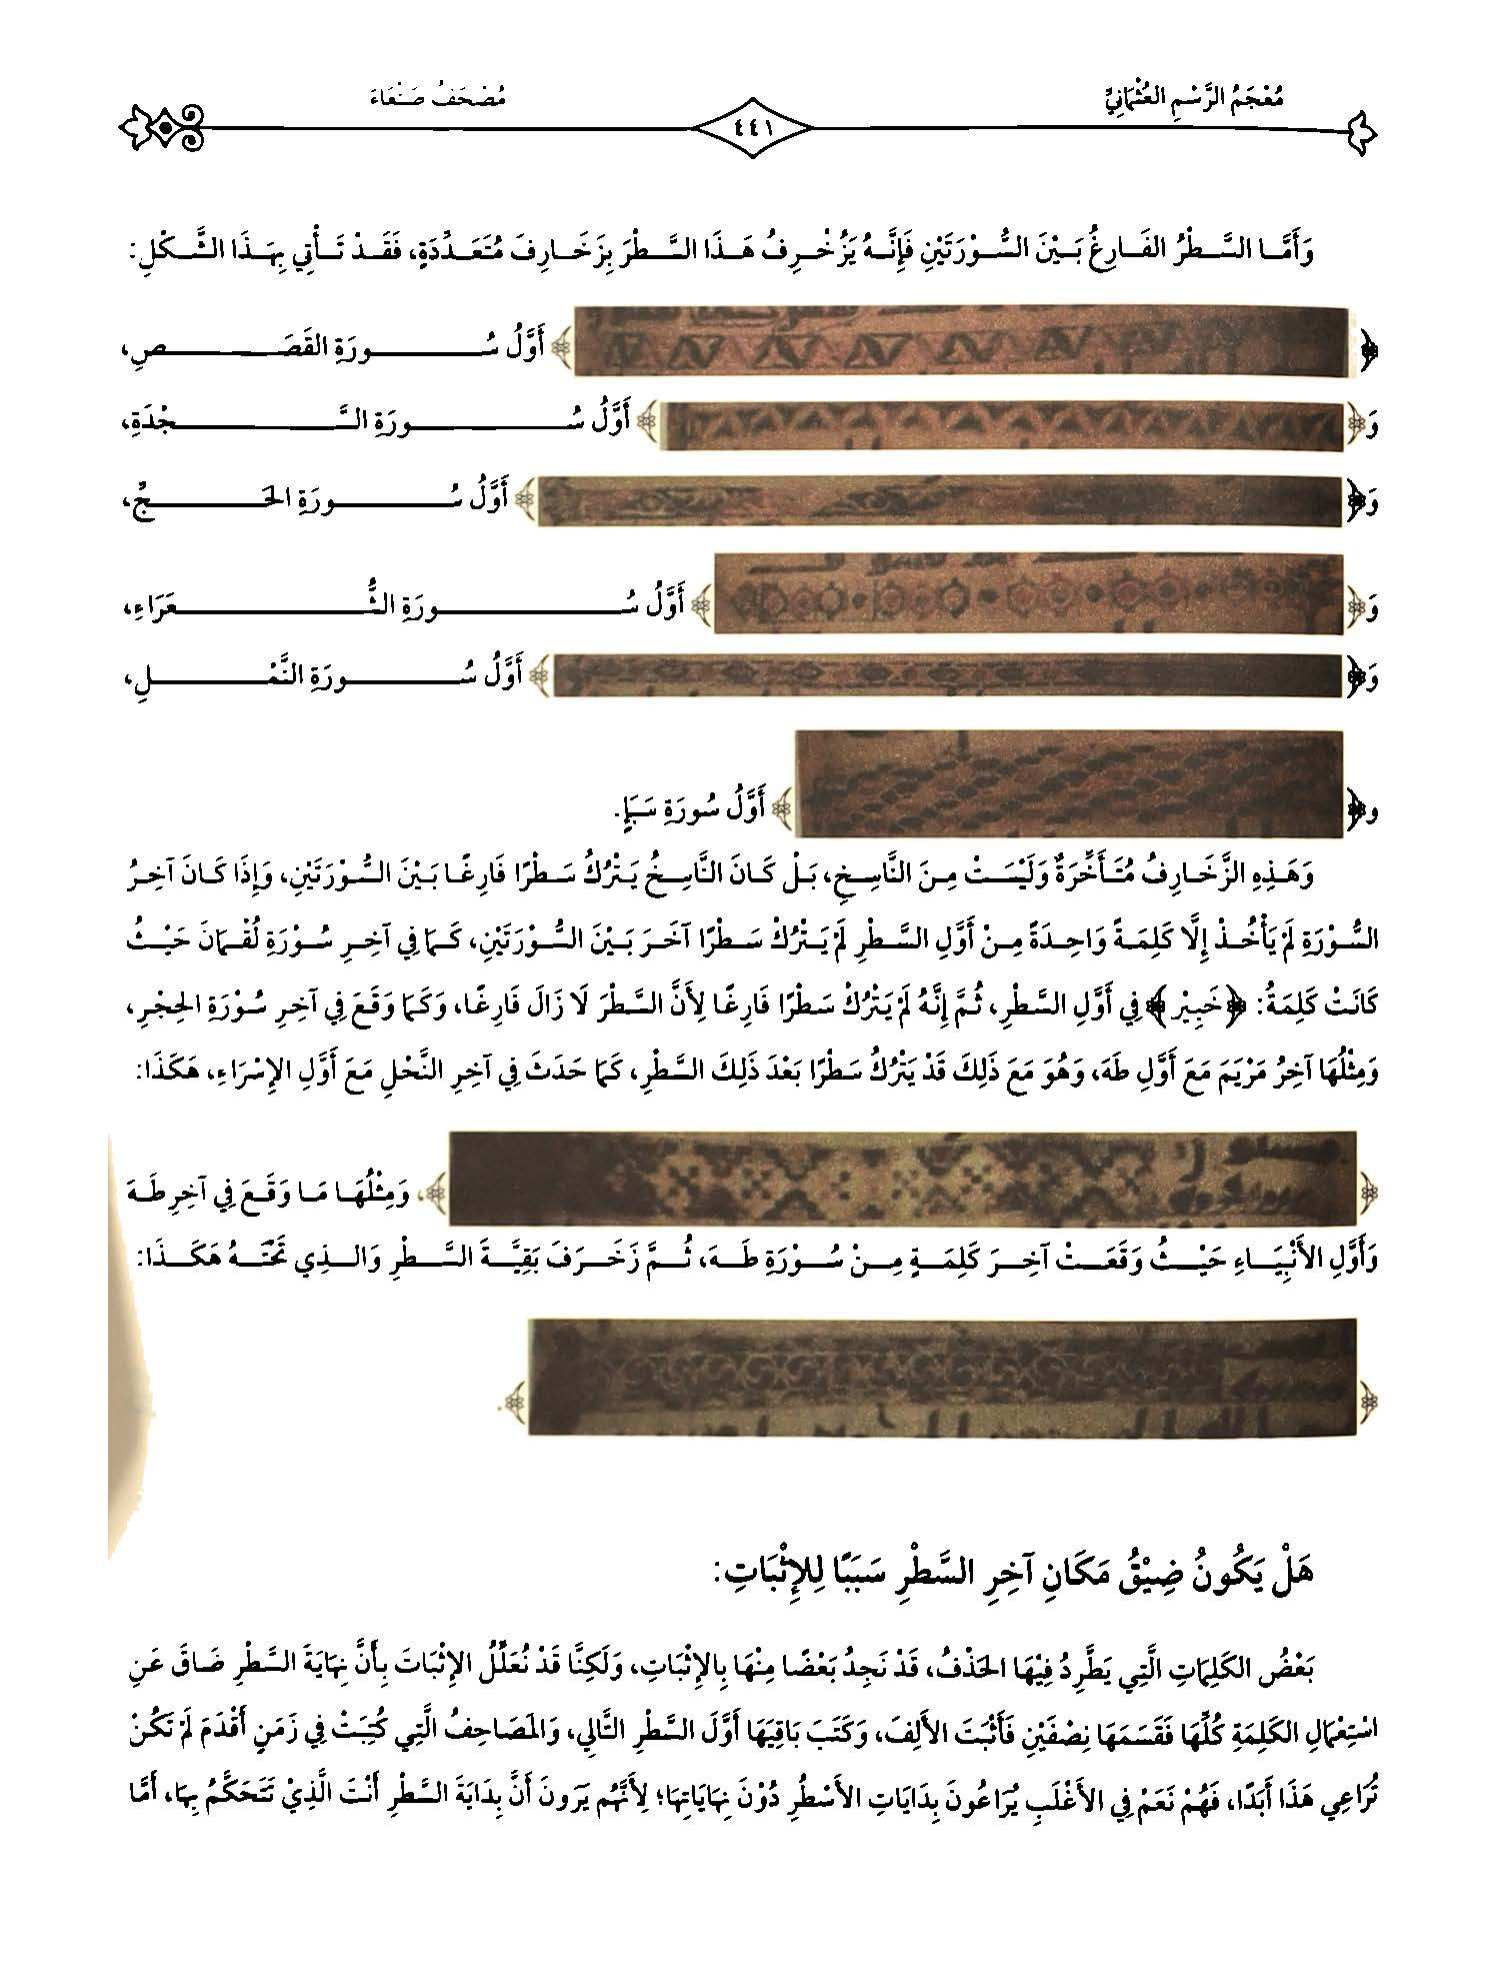 مُعْجَمُ الرَّسْمِ العُثْمَانِيِّ
٤٤١
مُصْحَفُ صَنْعَاءَ
وَأَمَّا السَّطْرُ الفَارِغُ بَيْنَ السُّوْرَتَيْنِ فَإِنَّهُ يَزُخْرِفُ هَذَا السَّطْرَ بِزَخَارِفَ مُتَعَدِّدَةٍ، فَقَدْ تَأْتِي بِهَذَا الشَّكْلِ:
﴿ ﴾ أَوَّلُ سُورَةِ القَصَصِ،
وَ﴿ ﴾ أَوَّلُ سُورَةِ السَّجْدَةِ،
وَ﴿ ﴾ أَوَّلُ سُورَةِ الحَجِّ،
وَ﴿ ﴾ أَوَّلُ سُورَةِ الشُّعَرَاءِ،
وَ﴿ ﴾ أَوَّلُ سُورَةِ النَّمْلِ،
و﴿ ﴾ أَوَّلُ سُورَةِ سَبَإٍ.
وَهَذِهِ الزَّخَارِفُ مُتَأَخِّرَةٌ وَلَيْسَتْ مِنَ النَّاسِخِ، بَلْ كَانَ النَّاسِخُ يَتْرُكُ سَطْرًا فَارِغًا بَيْنَ السُّوْرَتَيْنِ، وَإِذَا كَانَ آخِرُ
السُّوْرَةِ لَمْ يَأْخُذْ إِلَّا كَلِمَةً وَاحِدَةً مِنْ أَوَّلِ السَّطْرِ لَمْ يَتْرُكْ سَطْرًا آخَرَ بَيْنَ السُّوْرَتَيْنِ، كَمَا فِي آخِرِ سُوْرَةِ لُقْمَانَ حَيْثُ
كَانَتْ كَلِمَةُ: ﴿خَبِيْر﴾ فِي أَوَّلِ السَّطْرِ، ثُمَّ إِنَّهُ لَمْ يَتْرُكْ سَطْرًا فَارِغًا لِأَنَّ السَّطْرَ لَا زَالَ فَارِغًا، وَكَمَا وَقَعَ فِي آخِرِ سُوْرَةِ الحِجْرِ،
وَمِثْلُهَا آخِرُ مَرْيَمَ مَعَ أَوَّلِ طَهَ، وَهُوَ مَعَ ذَلِكَ قَدْ يَتْرُكُ سَطْرًا بَعْدَ ذَلِكَ السَّطْرِ، كَمَا حَدَثَ فِي آخِرِ النَّحْلِ مَعَ أَوَّلِ الإِسْرَاءِ، هَكَذَا:
﴿ ﴾، وَمِثْلُهَا مَا وَقَعَ فِي آخِرِ طَهَ
وَأَوَّلِ الأَنْبِيَاءِ حَيْثُ وَقَعَتْ آخِرَ كَلِمَةٍ مِنْ سُوْرَةِ طَهَ، ثُمَّ زَخْرَفَ بَقِيَّةَ السَّطْرِ وَالذِي تَحْتَهُ هَكَذَا:
﴿ ﴾.
هَلْ يَكُونُ ضِيْقُ مَكَانِ آخِرِ السَّطْرِ سَبَبًا لِلإِثْبَاتِ:
بَعْضُ الكَلِمَاتِ الَّتِي يَطَّرِدُ فِيْهَا الحَذْفُ، قَدْ نَجِدُ بَعْضًا مِنْهَا بِالإِثْبَاتِ، وَلَكِنَّا قَدْ نُعَلِّلُ الإِثْبَاتَ بِأَنَّ نِهَايَةَ السَّطْرِ ضَاقَ عَنِ
اسْتِعْمَالِ الكَلِمَةِ كُلِّهَا فَقَسَمَهَا نِصْفَيْنِ فَأَثْبَتَ الأَلِفَ، وَكَتَبَ بَاقِيَهَا أَوَّلَ السَّطْرِ التَّالِي، وَالمَصَاحِفُ الَّتِي كُتِبَتْ فِي زَمَنٍ أَقْدَمَ لَمْ تَكُنْ
تُرَاعِي هَذَا أَبَدًا، فَهُمْ نَعَمْ فِي الأَغْلَبِ يُرَاعُونَ بِدَايَاتِ الأَسْطُرِ دُوْنَ نِهَايَاتِهَا؛ لِأَنَّهُم يَرَونَ أَنَّ بِدَايَةَ السَّطْرِ أَنْتَ الَّذِيْ تَتَحَكَّمُ بِهَا، أَمَّا